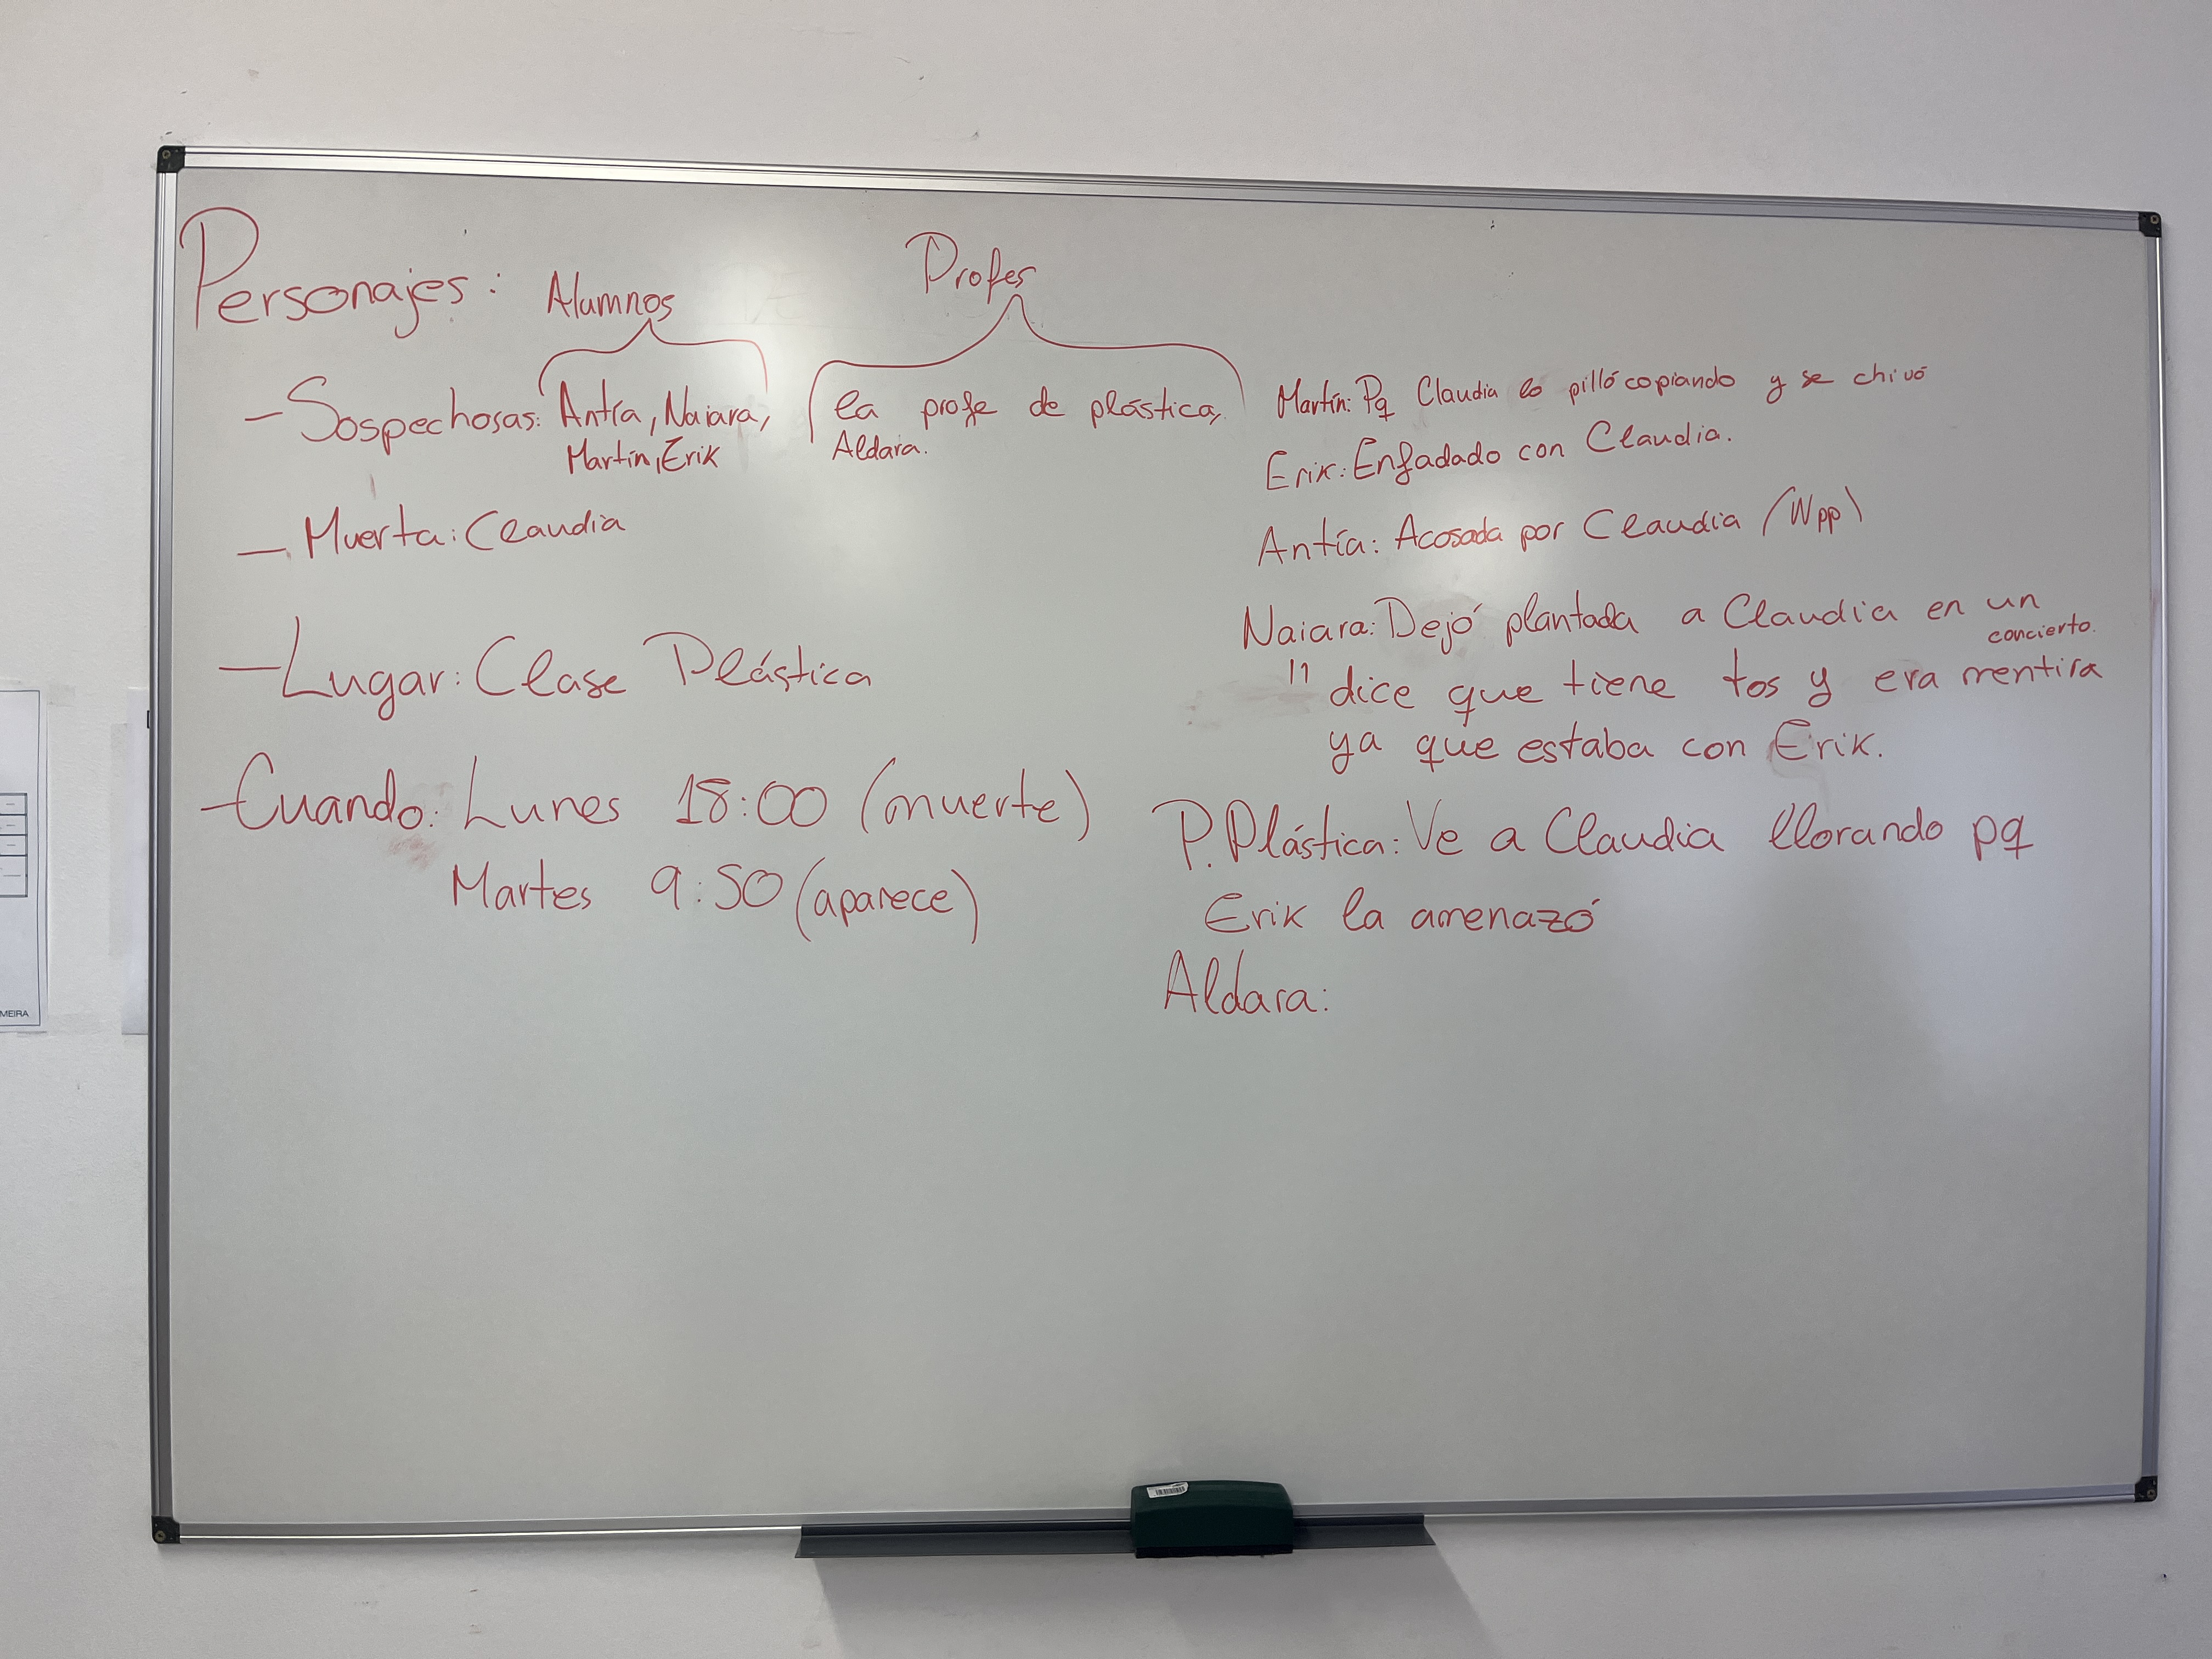 Personajes: Alumnos Profes
- Sospechosas: Antía, Naiara, la profe de plástica,
Martín, Erik Aldara.
- Muerta: Claudia
- Lugar: Clase Plástica
- Cuando: Lunes 18:00 (muerte)
Martes 9:50 (aparece)
Martín: Pq Claudia lo pilló copiando y se chivó
Erik: Enfadado con Claudia.
Antía: Acosada por Claudia (Wpp)
Naiara: Dejó plantada a Claudia en un
concierto.
" dice que tiene tos y era mentira
ya que estaba con Erik.
P. Plástica: Ve a Claudia llorando pq
Erik la amenazó
Aldara:
MEIRA